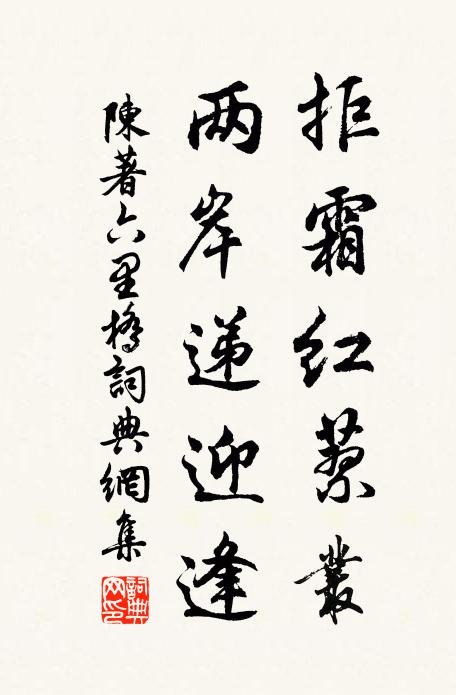 拒霜红蓼叢
两岸递迎逢
陳著六里橋詞典網集
詞典网印